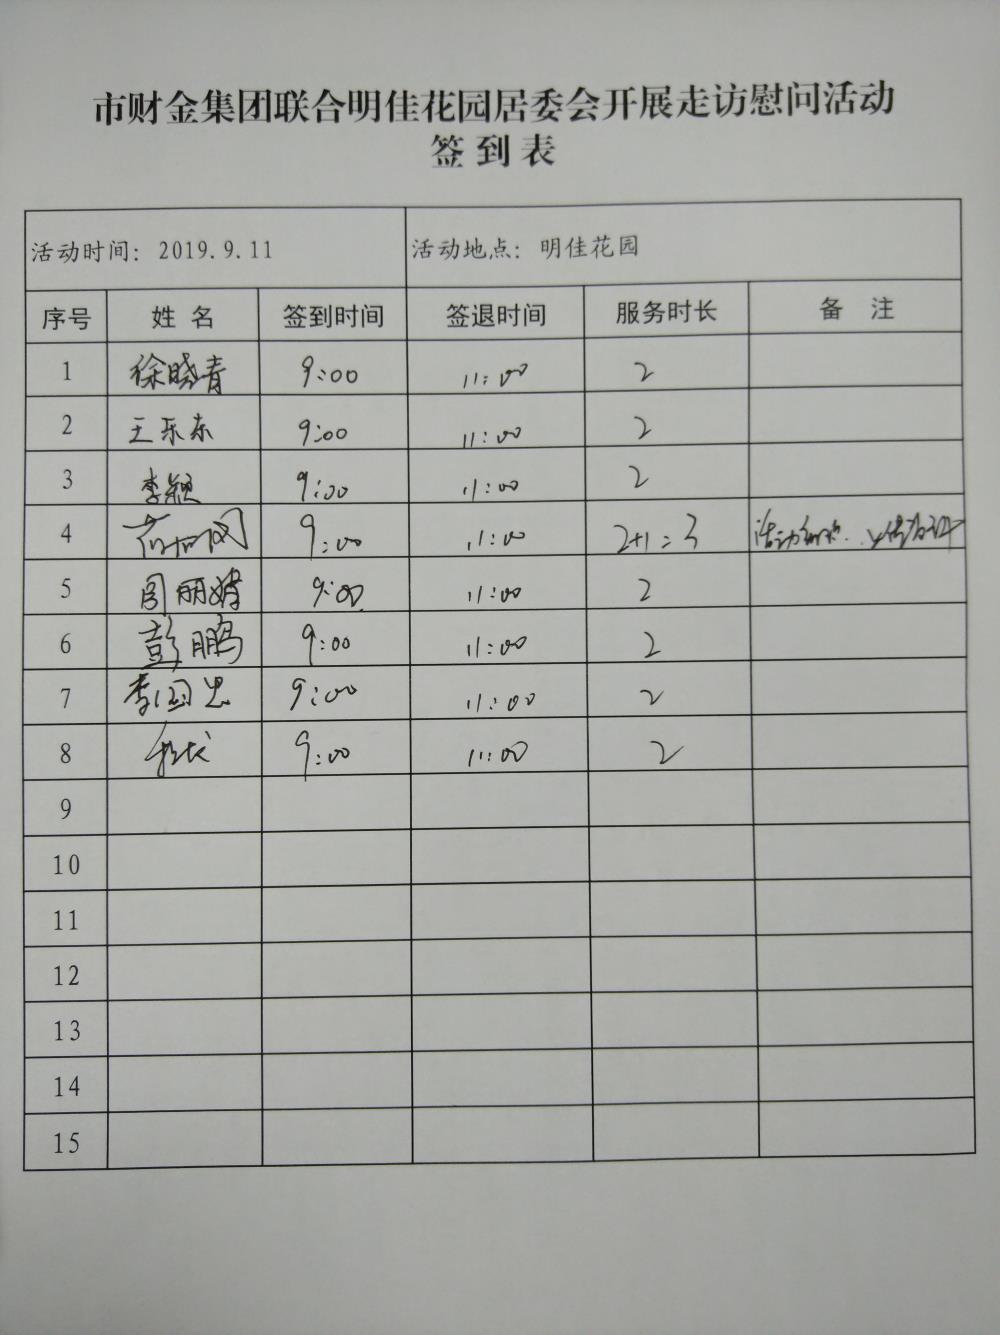 市财金集团联合明佳花园居委会开展走访慰问活动
签到表
活动时间：2019.9.11 活动地点：明佳花园
序号 姓名 签到时间 签退时间 服务时长 备注
1 徐晓青 9:00 11:00 2
2 王乐东 9:00 11:00 2
3 李颖 9:00 11:00 2
4 9:00 11:00 2+1=3 活动
5 丽娟 9:00 11:00 2
6 彭鹏 9:00 11:00 2
7 李国忠 9:00 11:00 2
8 9:00 11:00 2
9
10
11
12
13
14
15